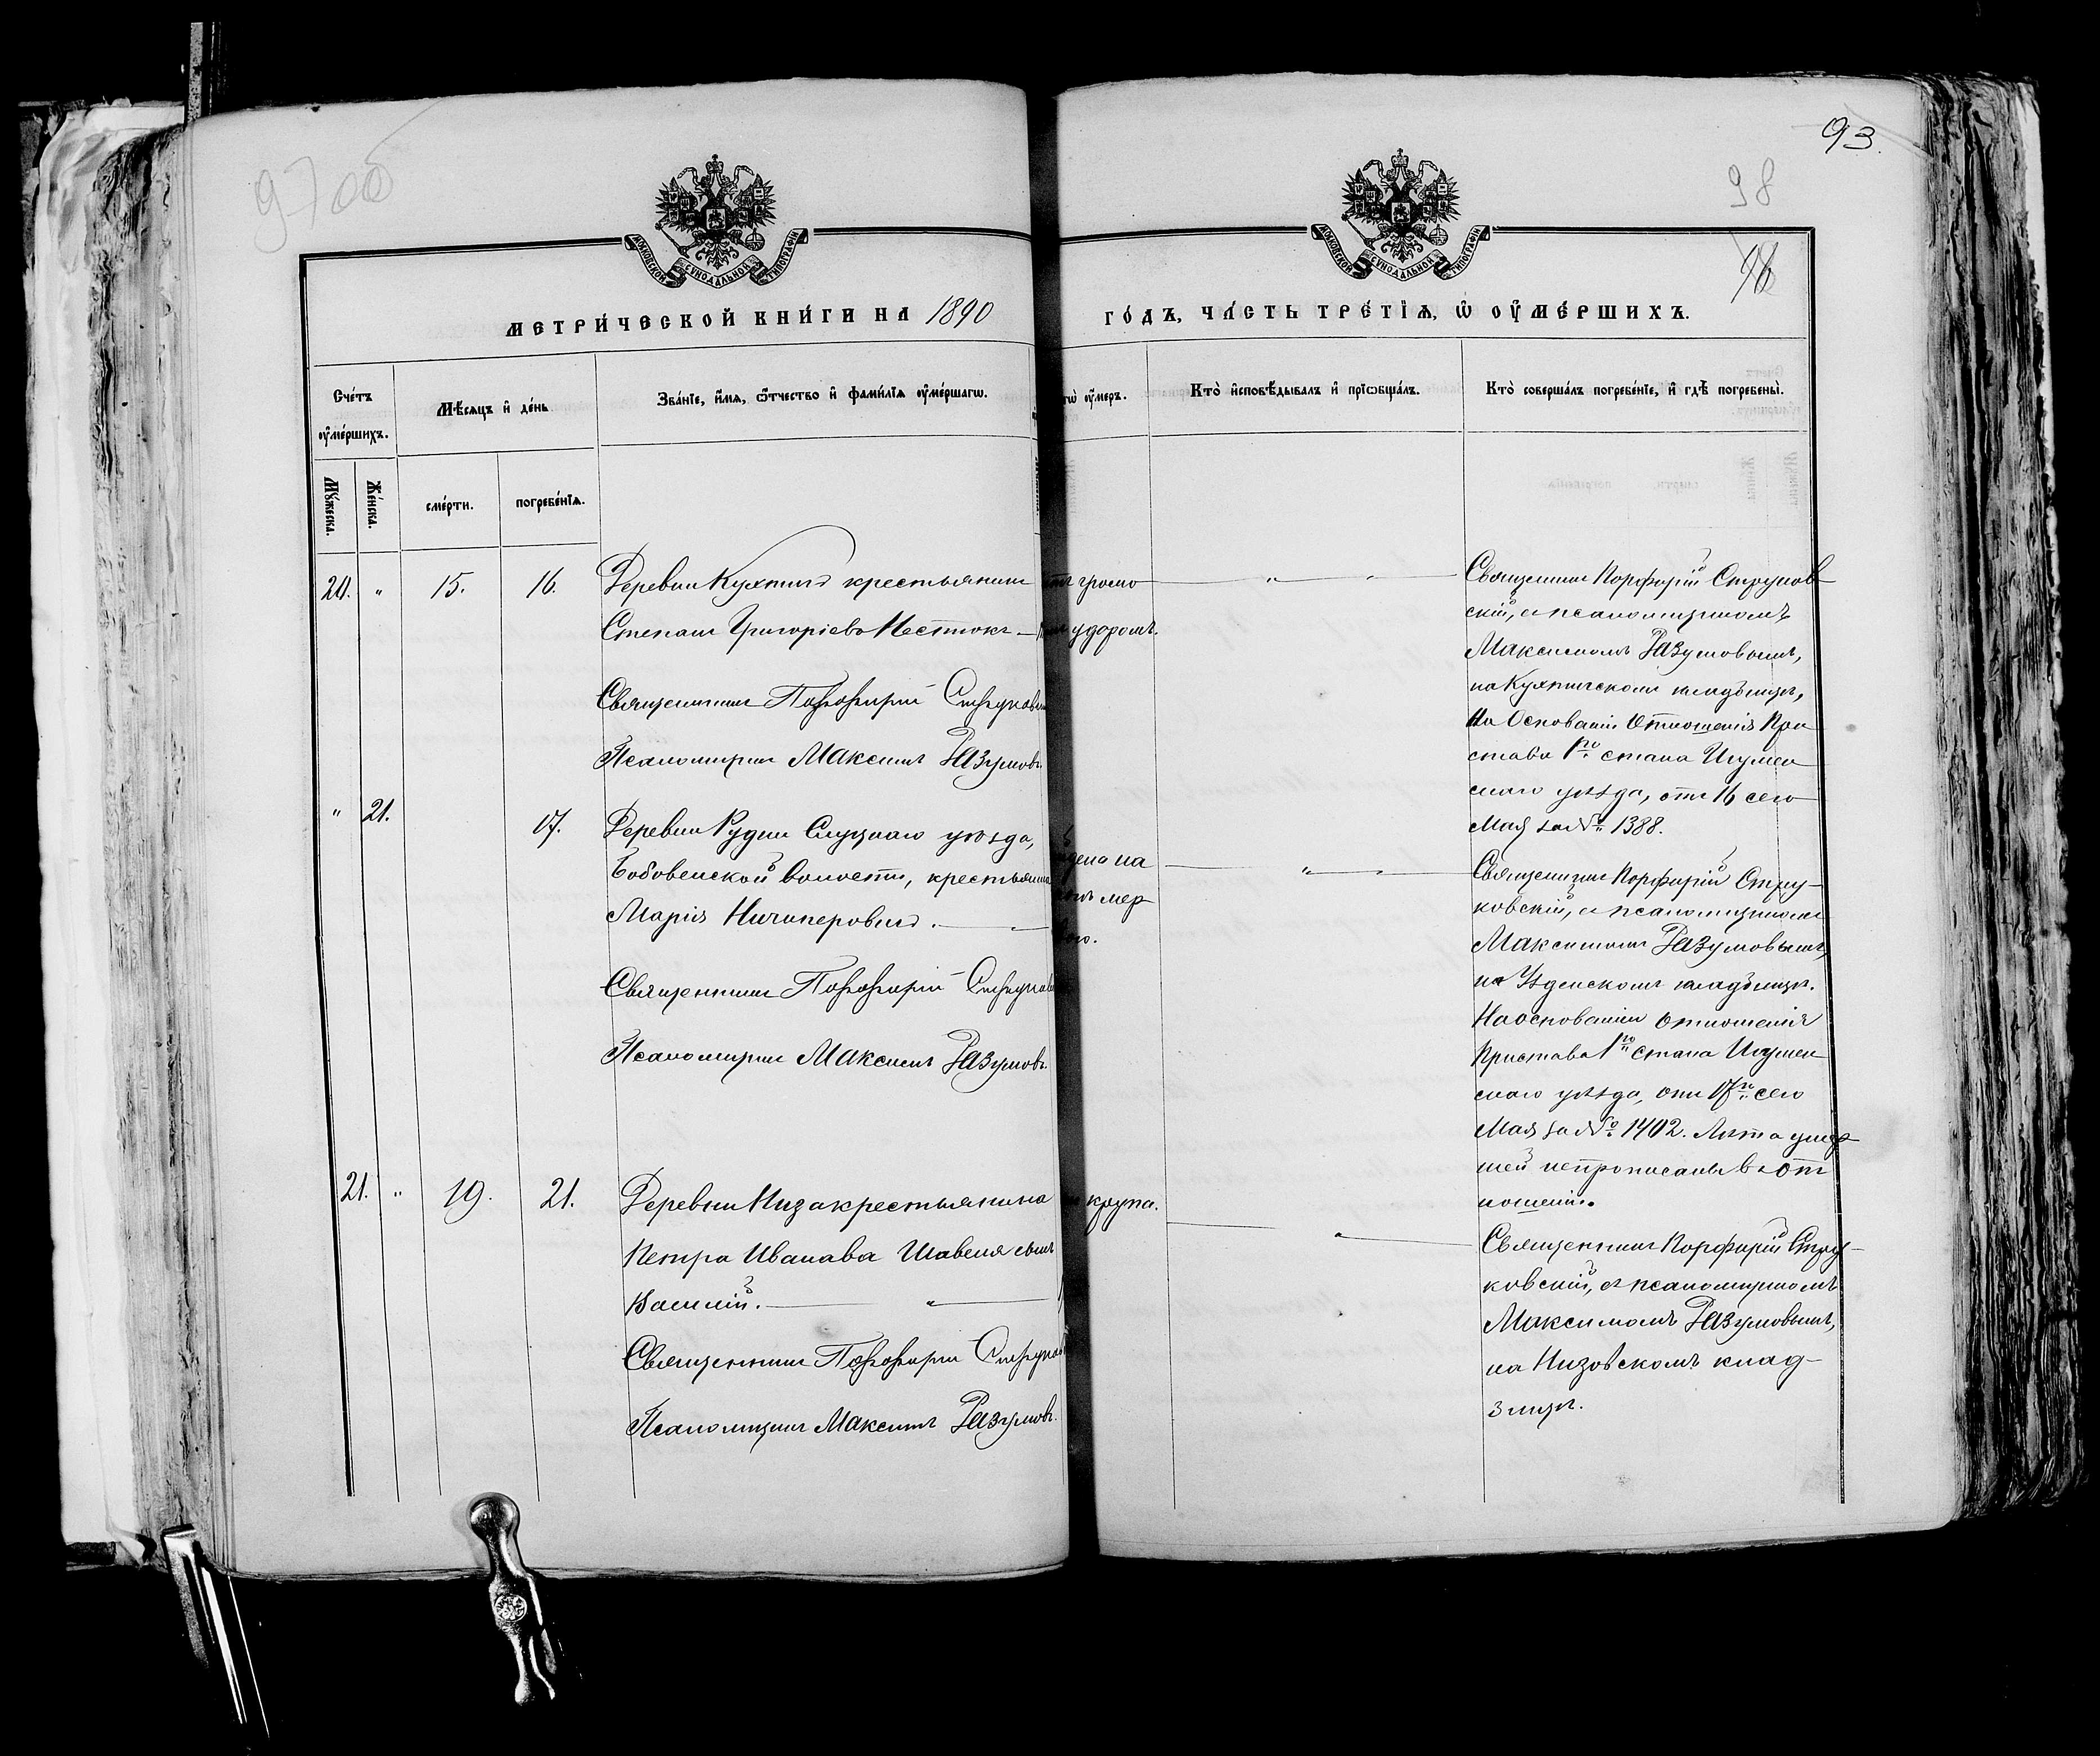 97об
93.
98
МОСКОВСКОЙ СУНОДАЛЬНОЙ ТИПОГРАФІИ
МОСКОВСКОЙ СУНОДАЛЬНОЙ ТИПОГРАФІИ
МЕТРИ́ЧЕСКОЙ КНИ́ГИ НА 1890
ГО́ДЪ, ЧА́СТЬ ТРЕ́ТІѦ, Ѽ ОУ҆МЕ́РШИХЪ.
Сче́тъ оу҆ме́ршихъ.
Мꙋ́жеска.
Же́нска.
Мѣ́сѧцъ и҆ де́нь
сме́рти.
погребе́нїѧ.
Зва́нїе, и҆́мѧ, ѻ҆́тчество и҆ фамі́лїѧ оу҆ме́ршагѡ.
гѡ̀ оу҆́меръ.
Кто̀ и҆сповѣ́дывалъ и҆ прїѡбща́лъ.
Кто̀ соверша́лъ погребе́нїе, и҆ гдѣ̀ погребены̀.
20. " 15. 16.
Деревни Кухтичъ крестьянинъ
Степанъ Григоріевъ Нестюкъ —
Священникъ Порфирій Струковс
Псаломщикъ Максимъ Разумовъ.
громо
ударомъ.
Священникъ Порфирій Струков
скій, съ псаломщикомъ
Максимомъ Разумовымъ,
на Кухтичскомъ кладбищѣ,
На Основаніи Отношенія При
става 1го стана Игумен
скаго уѣзда, отъ 16 сего
Мая за № 1388.
" 21. 17.
Деревни Рудни Слуцкаго уѣзда,
Бобовенской волости, крестьянка
Марія Ничипоровичъ. —
Священникъ Порфирій Струков
Псаломщикъ Максимъ Разумовъ.
дена на
мер
Священникъ Порфирій Стру-
ковскій, съ псаломщикомъ
Максимомъ Разумовымъ,
на Узденскомъ кладбищѣ.
На основаніи отношенія
Пристава 1го стана Игумен
скаго уѣзда, отъ 17го сего
Мая за № 1402. Лѣта умер
шей непрописаны въ от
ношеніи.
21. " 19. 21.
Деревни Низа крестьянина
Петра Иванова Шавеля сынъ
Василій. —
Священникъ Порфирій Струков
Псаломщикъ Максимъ Разумовъ.
крупа.
Священникъ Порфирій Стру-
ковскій, съ псаломщикомъ
Максимомъ Разумовымъ,
на Низовскомъ клад-
бищѣ.